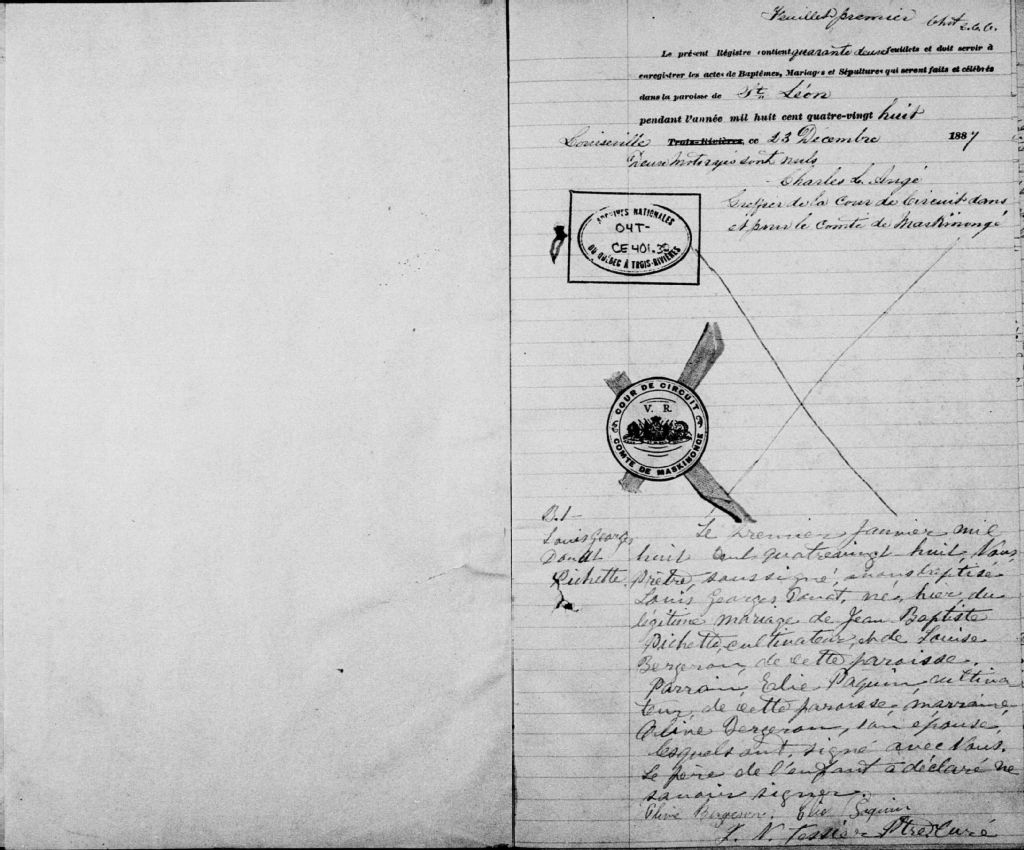 Feuillet premier Chst
L.C.C.
Le présent Régistre contient quarante deux feuillets et doit servir à
enregistrer les actes de Baptêmes, Mariages et Sépultures qui seront faits et célébrés
dans la paroisse de St. Léon
pendant l'année mil huit cent quatre-vingt huit
Louiseville Trois-Rivières, ce 23 Décembre 1887
Deux mots rayés sont nuls
Charles L. Angé
Greffier de la Cour de Circuit dans
et pour le Comté de Maskinongé
ARCHIVES NATIONALES
04T-
CE 401.39
DU QUÉBEC À TROIS-RIVIÈRES
COUR DE CIRCUIT
V. R.
COMTE DE MASKINONGE
B.1
Louis Georges
Donat
Pichette
Le premier Janvier mil
huit cent quatrevingt huit, Nous,
Prêtre, soussigné, avons baptisé
Louis Georges Donat, né, hier, du
légitime mariage de Jean Baptiste
Pichette, cultivateur, et de Louise
Bergeron, de cette paroisse.
Parrain, Elie Paquin, cultiva
teur, de cette paroisse, marraine,
Olive Bergeron, son épouse,
lesquels ont, signé avec Nous.
Le père de l'enfant a déclaré ne
savoir signer.
Olive Bergeron. Elie Paquin
Tessier Ptre Curé